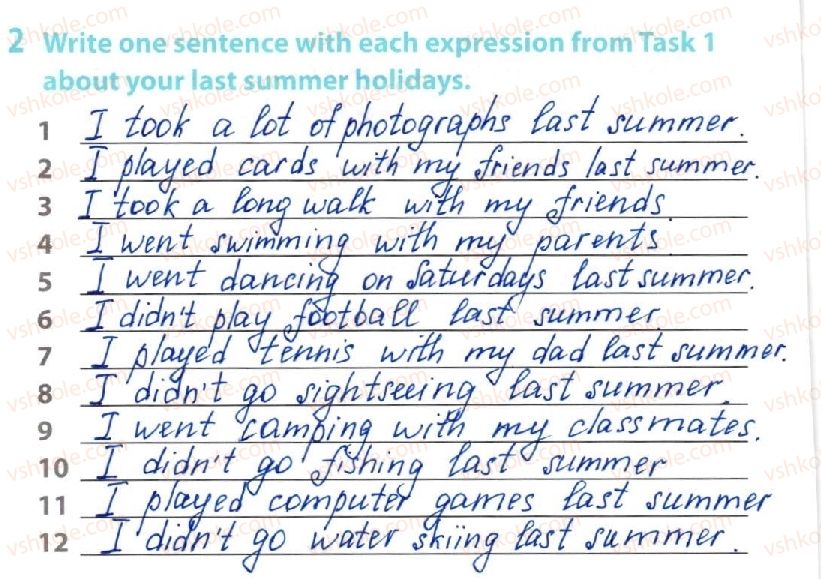 2 Write one sentence with each expression from Task 1
about your last summer holidays.
1 I took a lot of photographs last summer.
2 I played cards with my friends last summer.
3 I took a long walk with my friends.
4 I went swimming with my parents.
5 I went dancing on Saturdays last summer.
6 I didn't play football last summer.
7 I played tennis with my dad last summer.
8 I didn't go sightseeing last summer.
9 I went camping with my classmates.
10 I didn't go fishing last summer
11 I played computer games last summer
12 I didn't go water skiing last summer.
vshkole.com